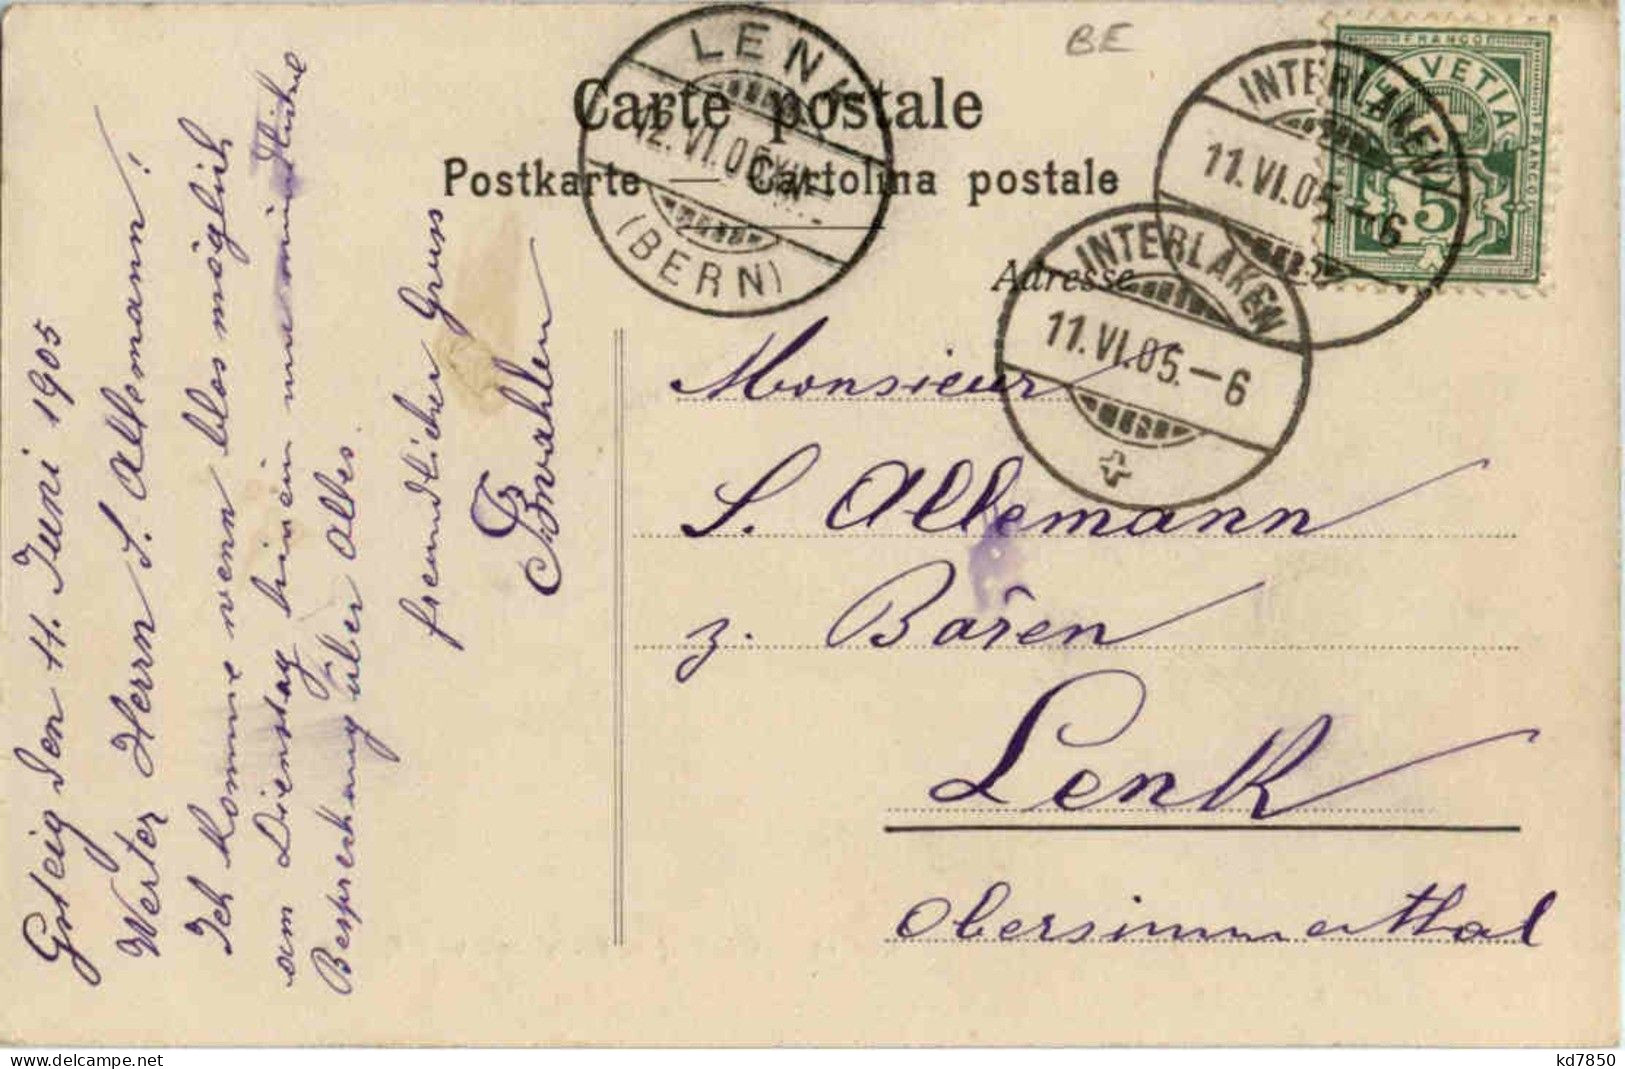 BE
Carte postale
Postkarte — Cartolina postale
Adresse
LENK
12.VI.05
(BERN)
INTERLAKEN
11.VI.05.–6
INTERLAKEN
11.VI.05.–6
FRANCO
HELVETIA
5
Monsieur
S. Allemann
z. Bären
Lenk
Obersimmenthal
Gsteig den 11. Juni 1905
Werter Herrn S. Allemann!
Ich komme wenn blos möglich
am Dienstag hinein um mündliche
Besprechung über Alles.
freundlicher Gruss
delcampe.net
kd7850